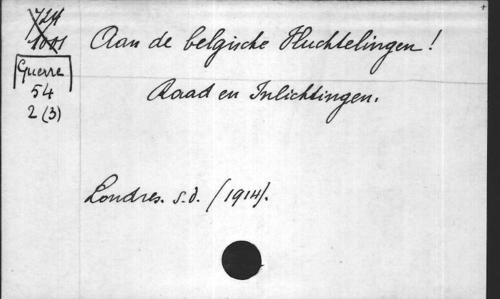 724
1001
Guerre
54
2 (3)
Aan de belgische Vluchtelingen!
Raad en Inlichtingen.
Londres. s.d. (1914).